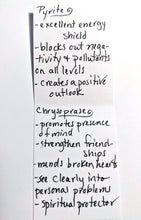 Pyrite
-excellent energy
shield
-blocks out nega-
tivity & pollutants
on all levels
-creates a positive
outlook
Chrysoprase
-promotes presence
of mind
-strengthen friend-
ships
-mends broken hearts
-see clearly into
personal problems
-spiritual protector